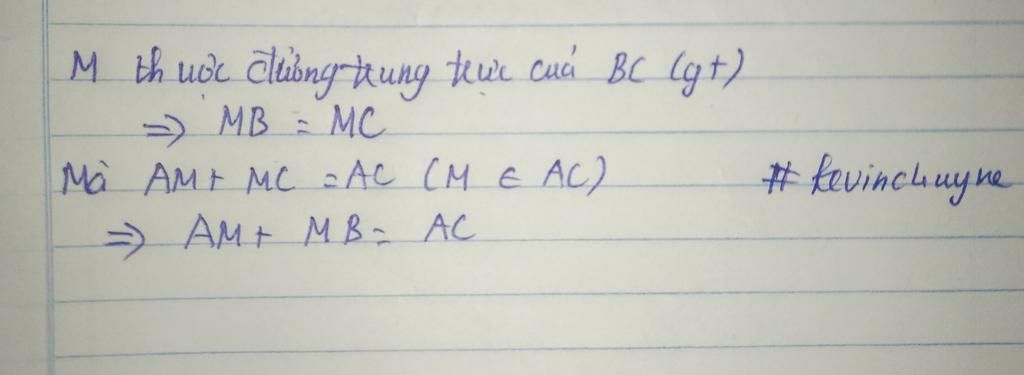 M thuộc đường trung trực của BC (gt)
⇒ MB = MC
Mà AM + MC = AC (M ∈ AC) # kevinchuyne
⇒ AM + MB = AC